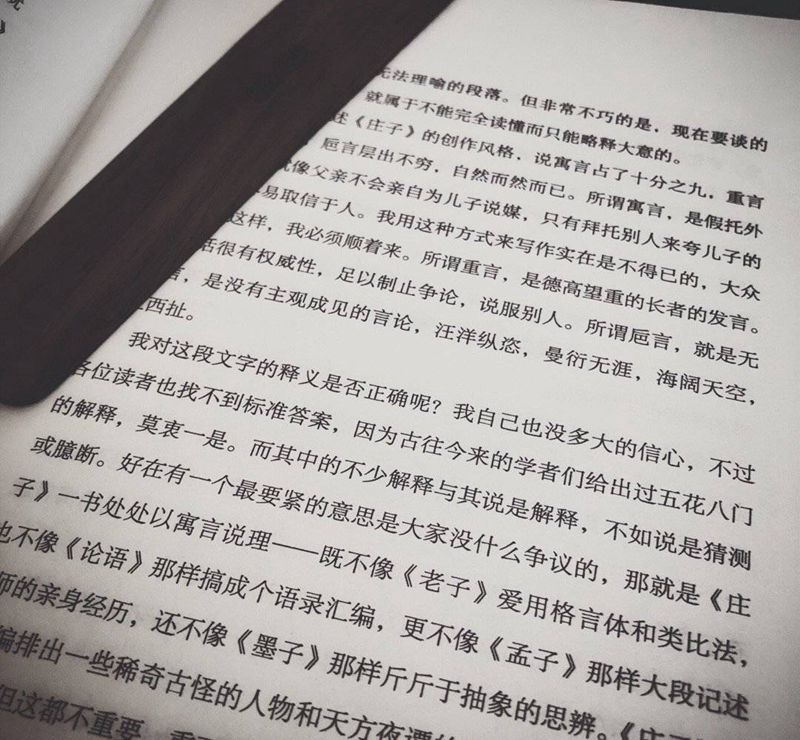 无法理喻的段落。但非常不巧的是，现在要谈的
就属于不能完全读懂而只能略释大意的。
述《庄子》的创作风格，说寓言占了十分之九，重言
，卮言层出不穷，自然而然而已。所谓寓言，是假托外
就像父亲不会亲自为儿子说媒，只有拜托别人来夸儿子的
易取信于人。我用这种方式来写作实在是不得已的，大众
这样，我必须顺着来。所谓重言，是德高望重的长者的发言。
话很有权威性，足以制止争论，说服别人。所谓卮言，就是无
言，是没有主观成见的言论，汪洋纵恣，曼衍无涯，海阔天空，
西扯。
我对这段文字的释义是否正确呢？我自己也没多大的信心，不过
各位读者也找不到标准答案，因为古往今来的学者们给出过五花八门
的解释，莫衷一是。而其中的不少解释与其说是解释，不如说是猜测
或臆断。好在有一个最要紧的意思是大家没什么争议的，那就是《庄
子》一书处处以寓言说理——既不像《老子》爱用格言体和类比法，
也不像《论语》那样搞成个语录汇编，更不像《孟子》那样大段记述
师的亲身经历，还不像《墨子》那样斤斤于抽象的思辨。《庄子
编排出一些稀奇古怪的人物和天方夜谭的
但这都不重要，重